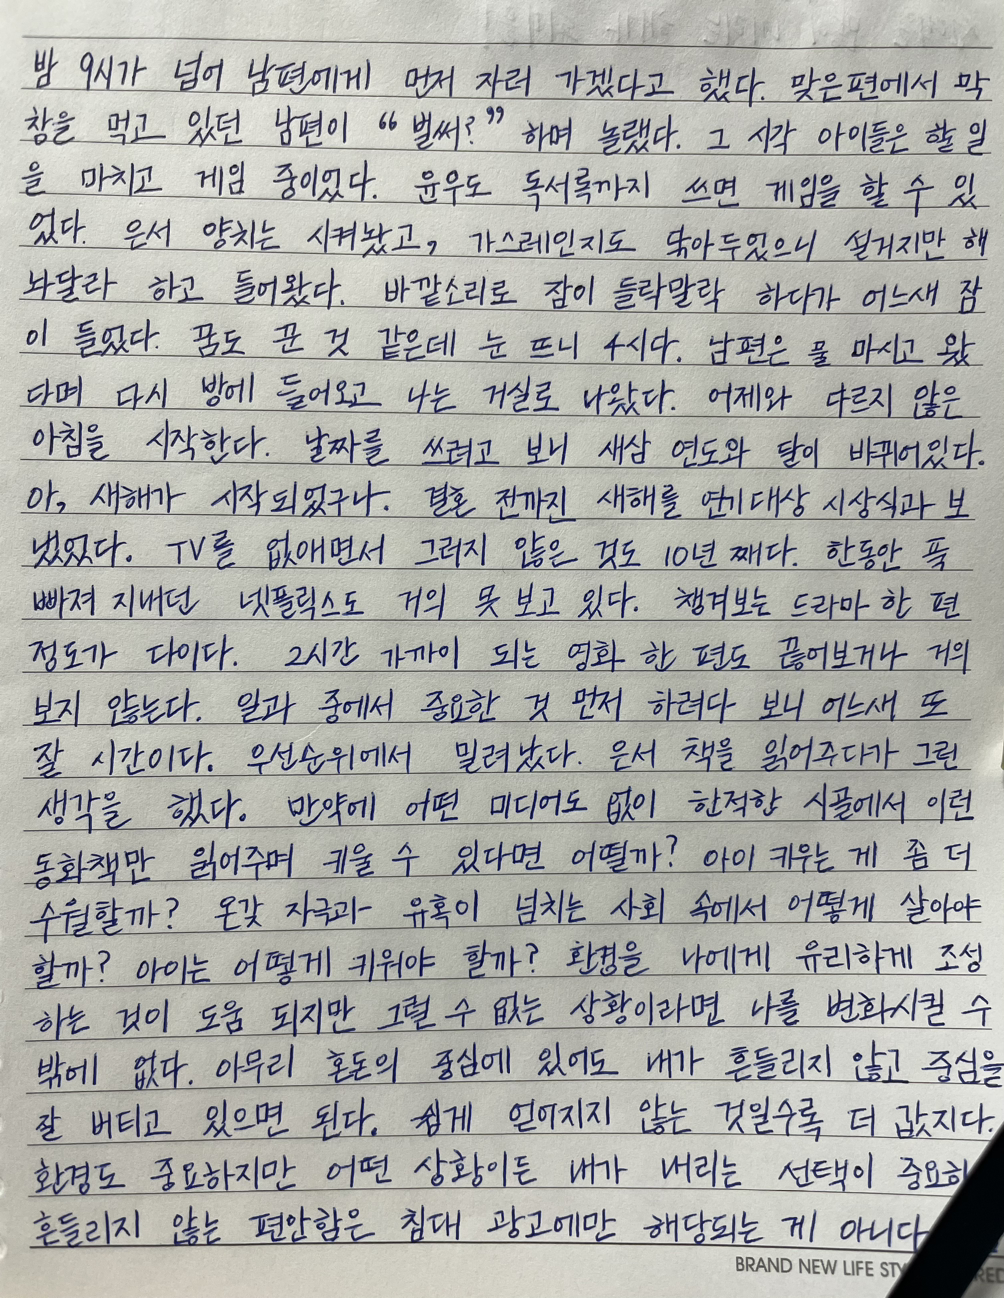 밤 9시가 넘어 남편에게 먼저 자러 가겠다고 했다. 맞은편에서 막
창을 먹고 있던 남편이 “벌써?” 하며 놀랬다. 그 시각 아이들은 할 일
을 마치고 게임 중이었다. 윤우도 독서록까지 쓰면 게임을 할 수 있
었다. 은서 양치는 시켜놨고, 가스레인지도 닦아두었으니 설거지만 해
놔달라 하고 들어왔다. 바깥소리로 잠이 들락말락 하다가 어느새 잠
이 들었다. 꿈도 꾼 것 같은데 눈 뜨니 4시다. 남편은 물 마시고 왔
다며 다시 방에 들어오고 나는 거실로 나왔다. 어제와 다르지 않은
아침을 시작한다. 날짜를 쓰려고 보니 새삼 연도와 달이 바뀌어있다.
아, 새해가 시작되었구나. 결혼 전까진 새해를 연기대상 시상식과 보
냈었다. TV를 없애면서 그러지 않은 것도 10년 째다. 한동안 푹
빠져 지내던 넷플릭스도 거의 못 보고 있다. 챙겨보는 드라마 한 편
정도가 다이다. 2시간 가까이 되는 영화 한 편도 끊어보거나 거의
보지 않는다. 일과 중에서 중요한 것 먼저 하려다 보니 어느새 또
잘 시간이다. 우선순위에서 밀려났다. 은서 책을 읽어주다가 그런
생각을 했다. 만약에 어떤 미디어도 없이 한적한 시골에서 이런
동화책만 읽어주며 키울 수 있다면 어떨까? 아이 키우는 게 좀 더
수월할까? 온갖 자극과 유혹이 넘치는 사회 속에서 어떻게 살아야
할까? 아이는 어떻게 키워야 할까? 환경을 나에게 유리하게 조성
하는 것이 도움 되지만 그럴 수 없는 상황이라면 나를 변화시킬 수
밖에 없다. 아무리 혼돈의 중심에 있어도 내가 흔들리지 않고 중심을
잘 버티고 있으면 된다. 쉽게 얻어지지 않는 것일수록 더 값지다.
환경도 중요하지만 어떤 상황이든 내가 내리는 선택이 중요하
흔들리지 않는 편안함은 침대 광고에만 해당되는 게 아니다
BRAND NEW LIFE